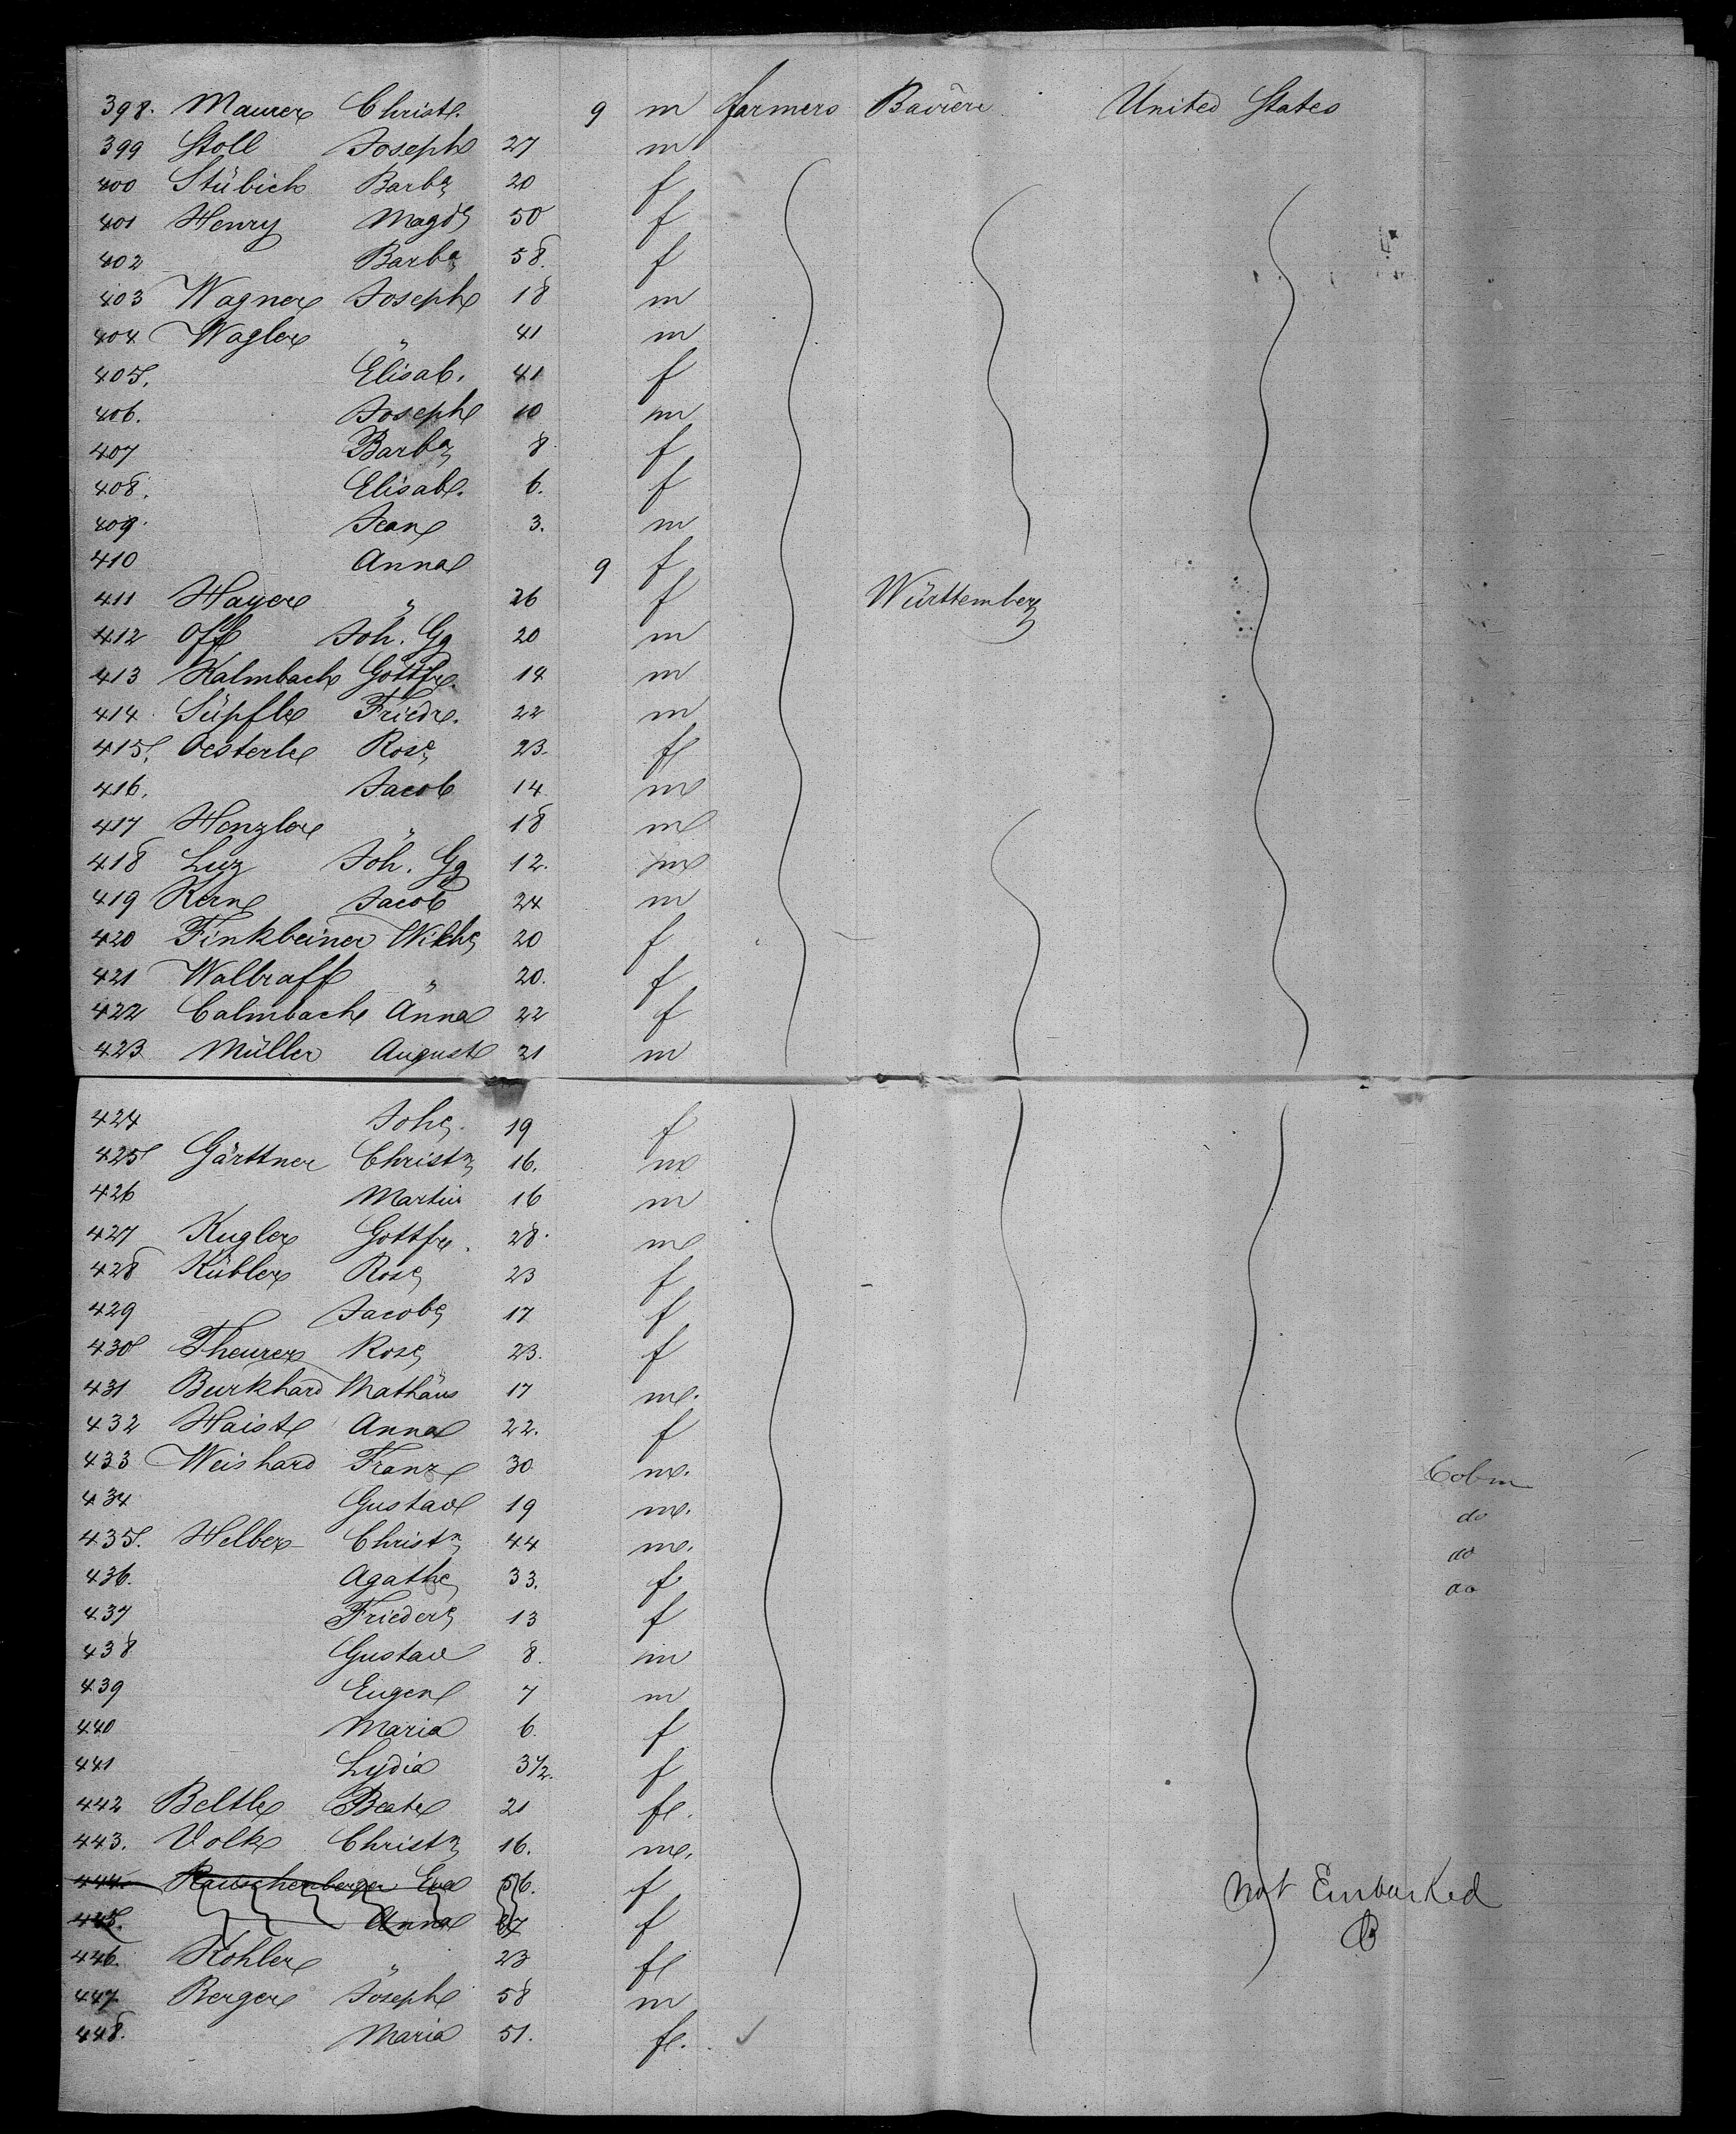 398. Maurer Christ. 9 m farmers Baviere United States
399 Stoll Joseph 27 m
400 Stübich Barba 20 f
401 Henry Magde 50 f
402 Barba 58. f
403 Wagner Joseph 18 m
404 Wagler " 41 m
405. Elisab. 41 f
406. Joseph 10 m
407 Barba 8 f
408. Elisab. 6. f
409. Jean 3. m
410 Anna 9 f
411 Hayer " 26 f Württemberg
412 Off Joh. Gg 20 m
413 Kalmbach Gottfr. 14 m
414 Süpfle Friedr. 22 m
415. Oesterle Rose 23. f
416. Jacob 14 m
417 Henzler " 18 m
418 Luz Joh. Gg 12. m
419 Kern Jacob 24 m
420 Finkbeiner Wilhe 20 f
421 Walbraff " 20. f
422 Calmbach Anna 22 f
423 Müller August 21 m
424 Johe. 19 f
425 Gärttner Christn 16. m
426 Martin 16 m
427 Kugler Gottfr. 28. m
428 Kübler Rose 23 f
429 Jacobe 17 f
430 Theurer Rose 23. f
431 Burkhard Mathäus 17 m.
432 Haist Anna 22. f
433 Weishard Franz 30 m. Cabin
434 Gustav 19 m. do
435. Helber Christn 44 m. do
436. Agathe 33. f do
437 Friedere 13 f
438 Gustav 8. m
439 Eugen 7 m
440 Maria 6. f
441 Lydia 3 1/2. f
442 Beltle Beate 21 f.
443. Volk Christn 16. m.
444. Rauschenberger Eva 56. f not Embarked
445. Anna f B
446. Kohler " 23 f
447 Berger Joseph 58 m
448. Maria 51. f. ✓